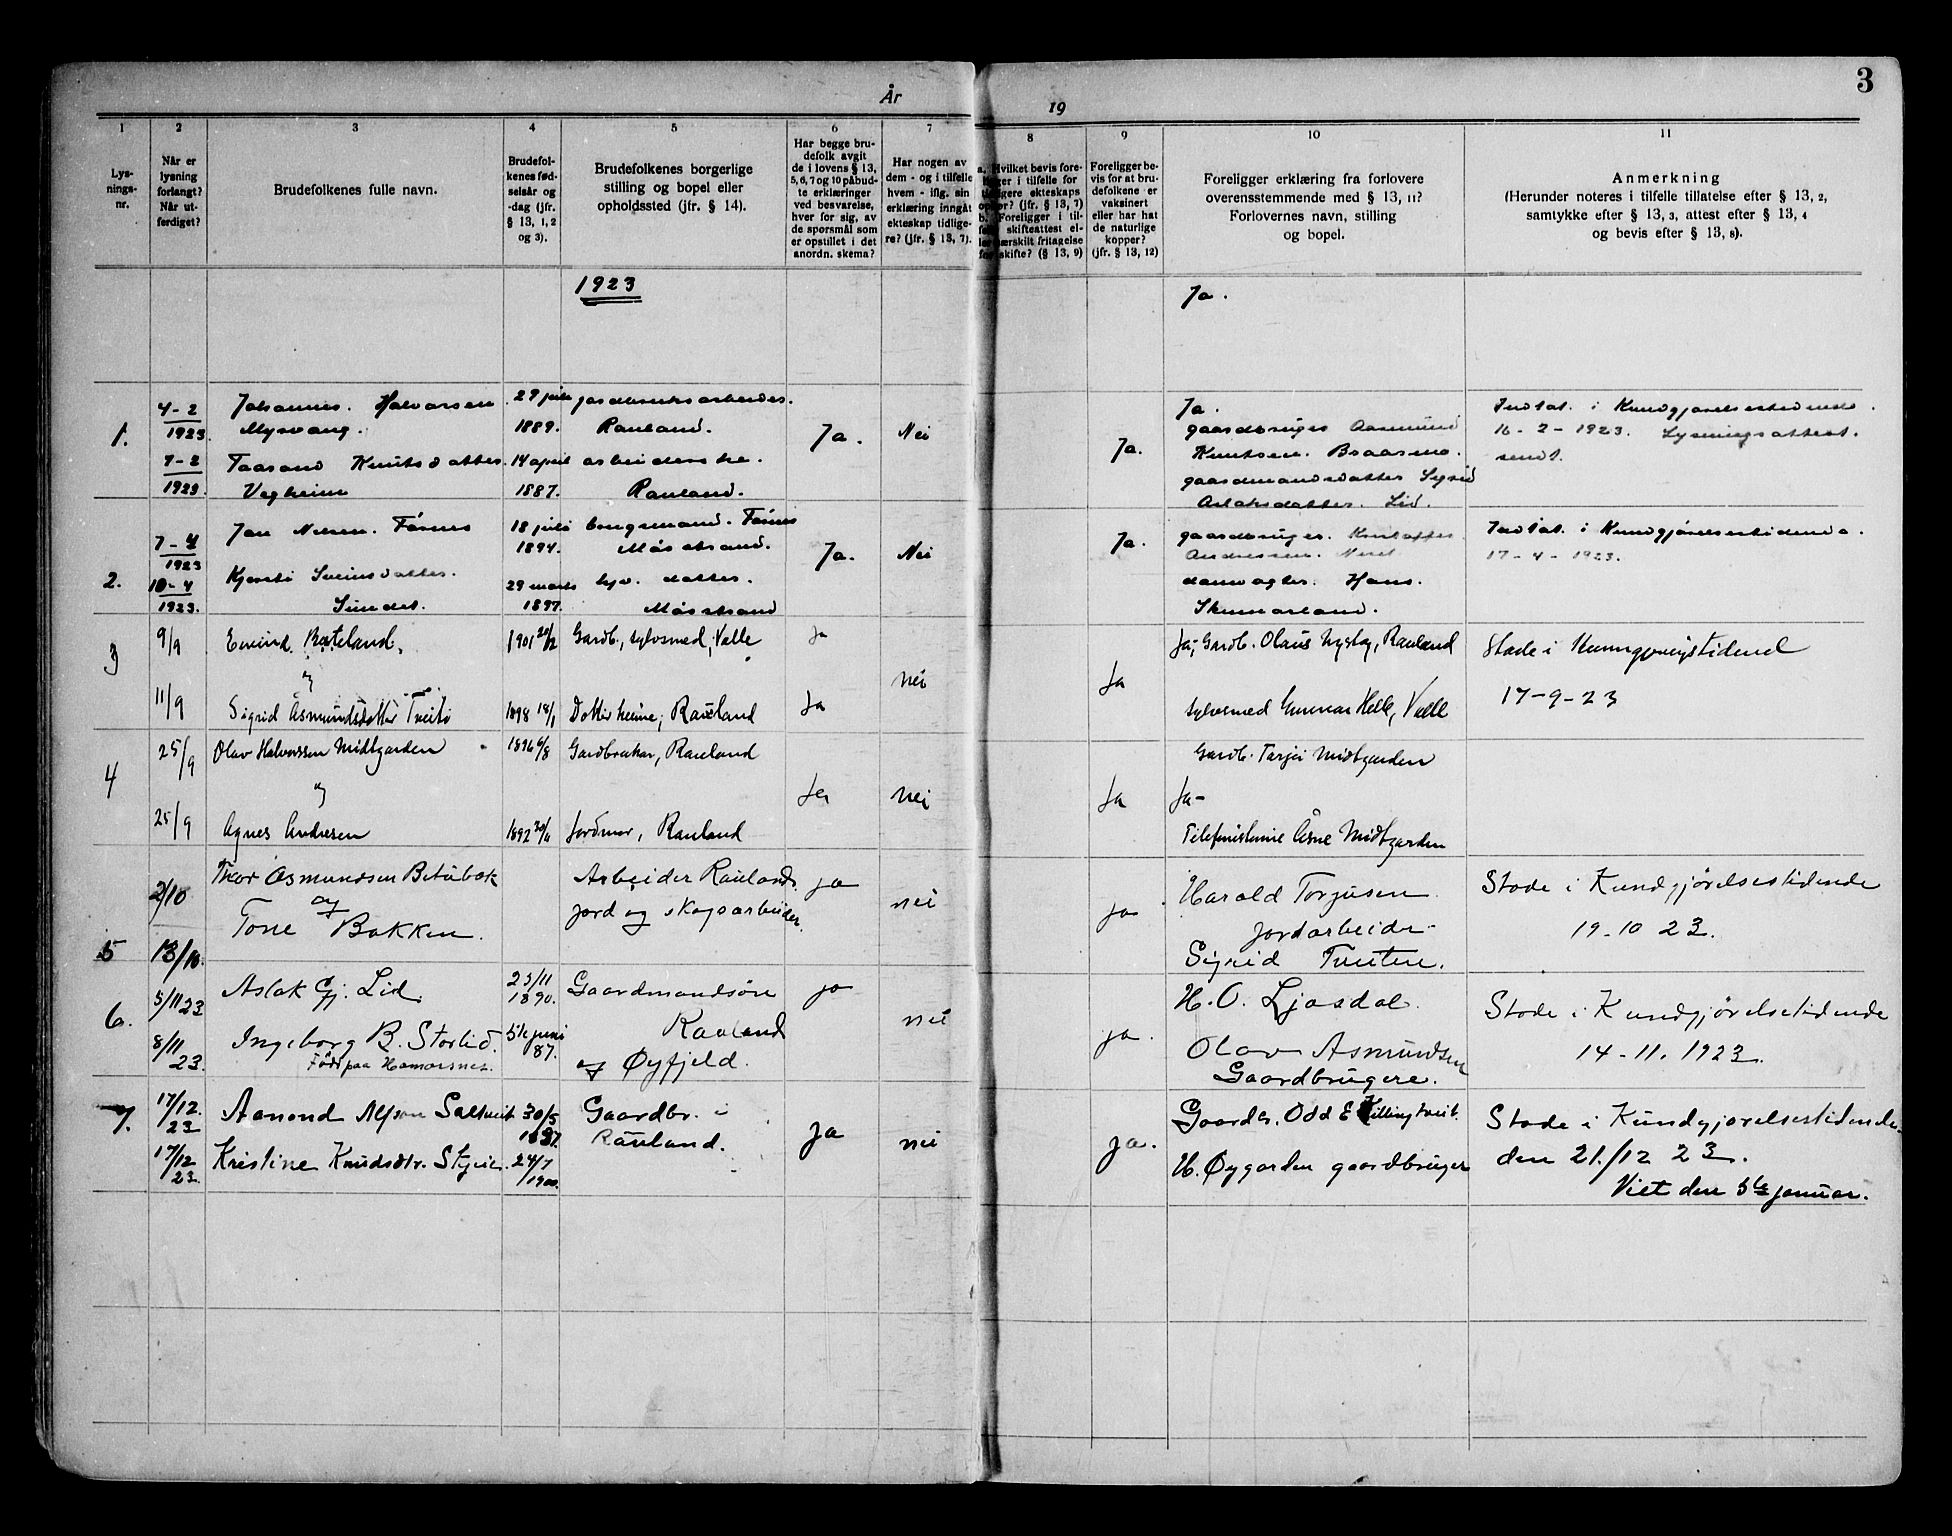 3
År
19
1
2
3
4
5
6
7
8
9
10
11
Lys-
nings-
nr.
Når er
lysning
forlangt?
Når ut-
ferdiget?
Brudefolkenes fulle navn.
Brudefol-
kenes fød-
selsår og
-dag (jfr.
§ 13, 1, 2
og 3).
Brudefolkenes borgerlige
stilling og bopel eller
opholdssted (jfr. § 14).
Har begge bru-
defolk avgit
de i lovens § 13,
5, 6, 7 og 10 påbud-
te erklæringer
ved besvarelse,
hver for sig, av
de spørsmål som
er opstillet i det
anordn. skema?
Har nogen av
dem - og i tilfelle
hvem - iflg. sin
erklæring inngått
ekteskap tidlige-
re? (jfr. § 13, 7).
a. Hvilket bevis fore-
ligger i tilfelle for
tidligere ekteskaps
ophør? (jfr. § 13, 7)
b. Foreligger i til-
felle skifteattest el-
ler særskilt fritagelse
for skifte? (§ 13, 9)
Foreligger be-
vis for at bru-
defolkene er
vaksinert
eller har hat
de naturlige
kopper?
(jfr. § 13, 12)
Foreligger erklæring fra forlovere
overensstemmende med § 13, 11?
Forlovernes navn, stilling
og bopel.
Anmerkning
(Herunder noteres i tilfelle tillatelse efter § 13, 2,
samtykke efter § 13, 3, attest efter § 13, 4
og bevis efter § 13, 8).
1923
Ja.
1.
4-2
1923.
7-2
1923.
Johannes. Halvorsen
Myrvang.
Taarand Knutsdatter
Vagheim
29 juli
1889.
14 april
1887.
jordbruksarbeider.
Rauland.
arbeiderske.
Rauland.
Ja.
Nei
Ja.
Ja.
gaardbruger Aasmund
Knutsen. Braasmo.
gaardmandsdatter Sigrid
Aslaksdatter. Lid.
Indtat. i Kundgjørelsestidende.
16-2-1923. Lysningsattest.
sendt.
2.
7-4
1923
10-4
1923.
Jon Nilsen. Førnes
Kjersti Sveinsdatter.
Sundet.
18 juli
1894.
29 marts
1897.
brugsmand. Førnes
Møsstrand.
datter.
Møsstrand
Ja.
Nei
Ja.
gaardbruger.
Andressen.
damvogter. Hans.
Skinnarland.
Indtat. i Kundgjørelsestidende.
17-4-1923.
3
9/9
11/9
Eivind Rateland,
og
Sigrid Åsmundsdotter Tveito
1901 20/2
1898 18/1
Gardb., sylvsmed, Valle
Dotter heime, Rauland
Ja
Ja
nei
Ja
Ja, Gardb. Olaus Nystog, Rauland
sylvsmed Gunnar Helle, Valle
Stode i Kunngjeringstidend
17-9-23
4
25/9
25/9
Olav Halvorssen Midtgarden
og
Agnes Andresen
1896 6/8
1892 20/11
Gardbrukar, Rauland
Jordmor, Rauland
Ja
nei
Ja
Gardb. Tarjei Midtgarden
Ja-
Telefonistinne Åsne Midtgarden
5
2/10
13/10.
Thor Asmundsen Bitubæk
og
Tone Bakken.
Arbeider Rauland.
jord og skogsarbeider.
ja
nei
ja
Harald Torjusen
jordarbeider
Sigrid Tveiten.
Stode i Kundgjørelsestidende
19-10 23.
6.
5/11 23
8/11
23.
Aslak Gj. Lid.
Ingeborg B. Storlid.
Född paa Hamarsnes.
23/11
1890.
5te juni
87.
Gaardmandsøn
Rauland
og Øyfjeld.
ja
nei
ja.
H. O. Ljosdal.
Olav Asmundsen
Gaardbrugere.
Stode i Kundgjørelsestidende
14-11. 1923.
7.
17/12.
23
17/12
23.
Aamond Alfson Saltveit
Kristine Knudsdtr.
30/5
1887.
24/7
1900.
Gaardbr. i
Rauland.
ja
nei
ja.
Gaardbr. Odd E Killingtveit.
H. Øygarden gaardbruger
Stode i Kundgjørelsestidende.
den 21./12 23.
Viet den 5te januar.